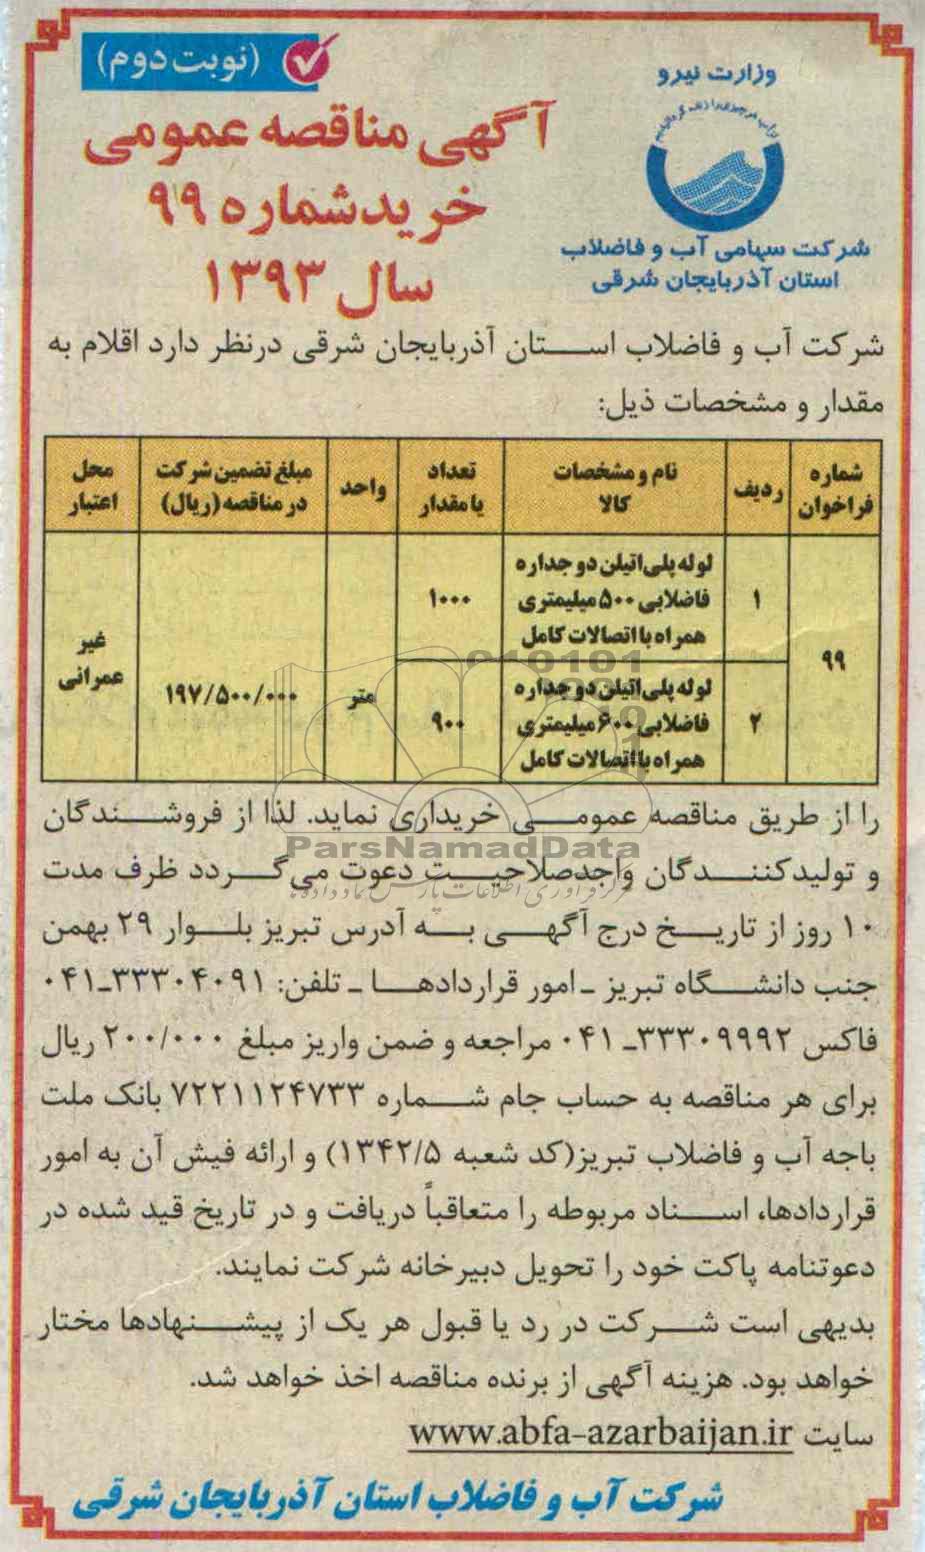 (نوبت دوم)
وزارت نیرو
آگهی مناقصه عمومی
خرید شماره ۹۹
سال ۱۳۹۳
شرکت سهامی آب و فاضلاب
استان آذربایجان شرقی
شرکت آب و فاضلاب استان آذربایجان شرقی درنظر دارد اقلام به
مقدار و مشخصات ذیل:
شماره فراخوان | ردیف | نام و مشخصات کالا | تعداد یا مقدار | واحد | مبلغ تضمین شرکت در مناقصه (ریال) | محل اعتبار
۹۹ | ۱ | لوله پلی اتیلن دو جداره فاضلابی ۵۰۰ میلیمتری همراه با اتصالات کامل | ۱۰۰۰ | متر | ۱۹۷/۵۰۰/۰۰۰ | غیر عمرانی
۲ | لوله پلی اتیلن دو جداره فاضلابی ۶۰۰ میلیمتری همراه با اتصالات کامل | ۹۰۰
را از طریق مناقصه عمومی خریداری نماید. لذا از فروشندگان
ParsNamadData
و تولیدکنندگان واجدصلاحیت دعوت می‌گردد ظرف مدت
۱۰ روز از تاریخ درج آگهی به آدرس تبریز بلوار ۲۹ بهمن
جنب دانشگاه تبریز ـ امور قراردادها ـ تلفن: ۳۳۳۰۴۰۹۱ـ۰۴۱
فاکس ۳۳۳۰۹۹۹۲ـ ۰۴۱ مراجعه و ضمن واریز مبلغ ۲۰۰/۰۰۰ ریال
برای هر مناقصه به حساب جام شماره ۷۲۲۱۱۲۴۷۳۳ بانک ملت
باجه آب و فاضلاب تبریز(کد شعبه ۱۳۴۲/۵) و ارائه فیش آن به امور
قراردادها، اسناد مربوطه را متعاقباً دریافت و در تاریخ قید شده در
دعوتنامه پاکت خود را تحویل دبیرخانه شرکت نمایند.
بدیهی است شرکت در رد یا قبول هر یک از پیشنهادها مختار
خواهد بود. هزینه آگهی از برنده مناقصه اخذ خواهد شد.
سایت www.abfa-azarbaijan.ir
شرکت آب و فاضلاب استان آذربایجان شرقی